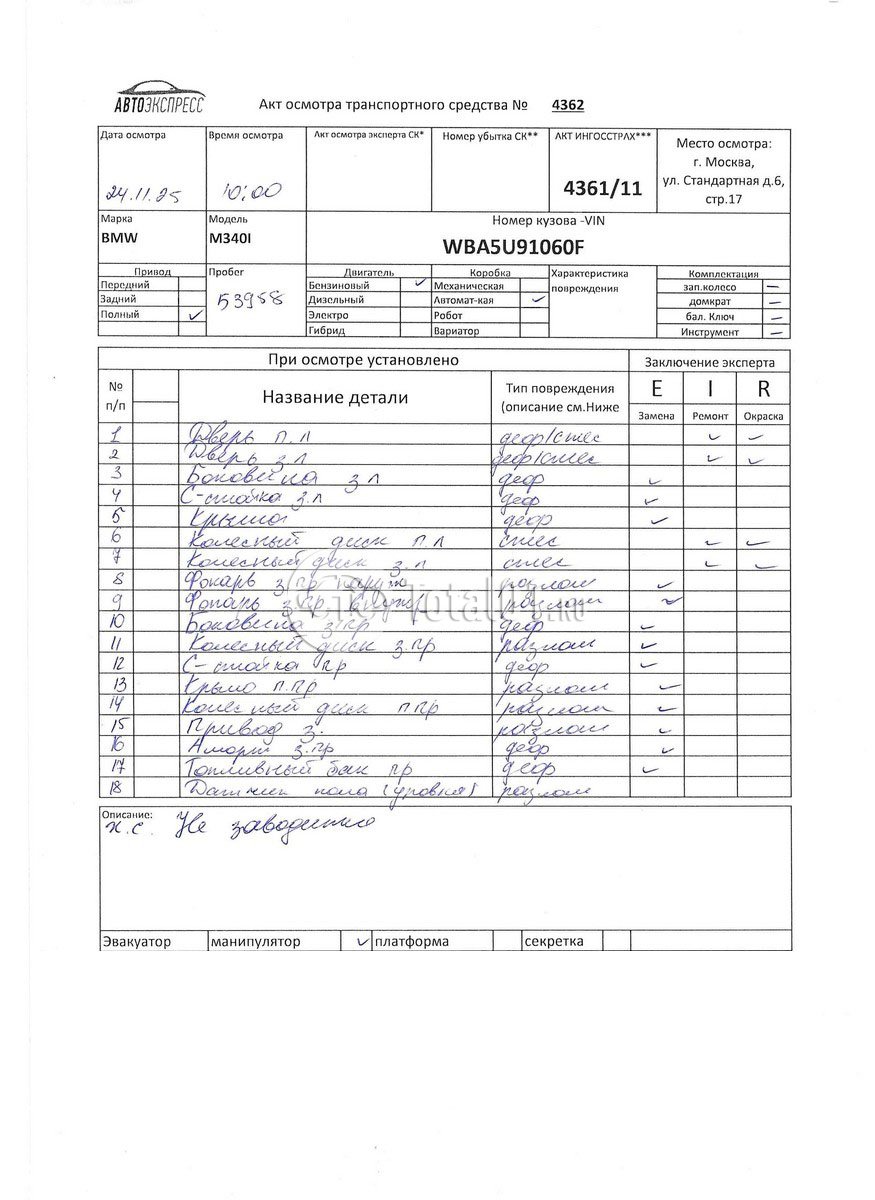 АВТОЭКСПРЕСС
Акт осмотра транспортного средства № 4362
Дата осмотра Время осмотра Акт осмотра эксперта СК* Номер убытка СК** АКТ ИНГОССТРАХ*** Место осмотра:
г. Москва,
24.11.25 10:00 4361/11 ул. Стандартная д.6,
стр.17
Марка Модель Номер кузова -VIN
BMW M340I WBA5U91060F
Привод Пробег Двигатель Коробка Характеристика Комплектация
Передний Бензиновый ✓ Механическая повреждения зап.колесо –
Задний 53958 Дизельный Автомат-кая ✓ домкрат –
Полный ✓ Электро Робот бал. Ключ –
Гибрид Вариатор Инструмент –
При осмотре установлено Заключение эксперта
№ п/п Название детали Тип повреждения (описание см.Ниже E I R
Замена Ремонт Окраска
1 Дверь п.л деф/стес ✓ ✓
2 Дверь з.л деф/стес ✓ ✓
3 Боковина з л деф ✓
4 С-стойка з.л деф ✓
5 Крыша деф ✓
6 Колесный диск п.л стес ✓ ✓
7 Колесный диск з.л стес ✓ ✓
8 Фонарь з пр наруж разлом ✓
9 Фонарь з.пр. внутр разлом ✓
10 Боковина з.пр деф ✓
11 Колесный диск з.пр разлом ✓
12 С-стойка пр деф ✓
13 Крыло п.пр разлом ✓
14 Колесный диск п пр разлом ✓
15 Привод з. разлом ✓
16 Аморт з.пр деф ✓
17 Топливный бак пр деф ✓
18 Датчик пола (уровня) разлом
Total01.RU
Описание:
х.с. Не заводится
Эвакуатор манипулятор ✓ платформа секретка